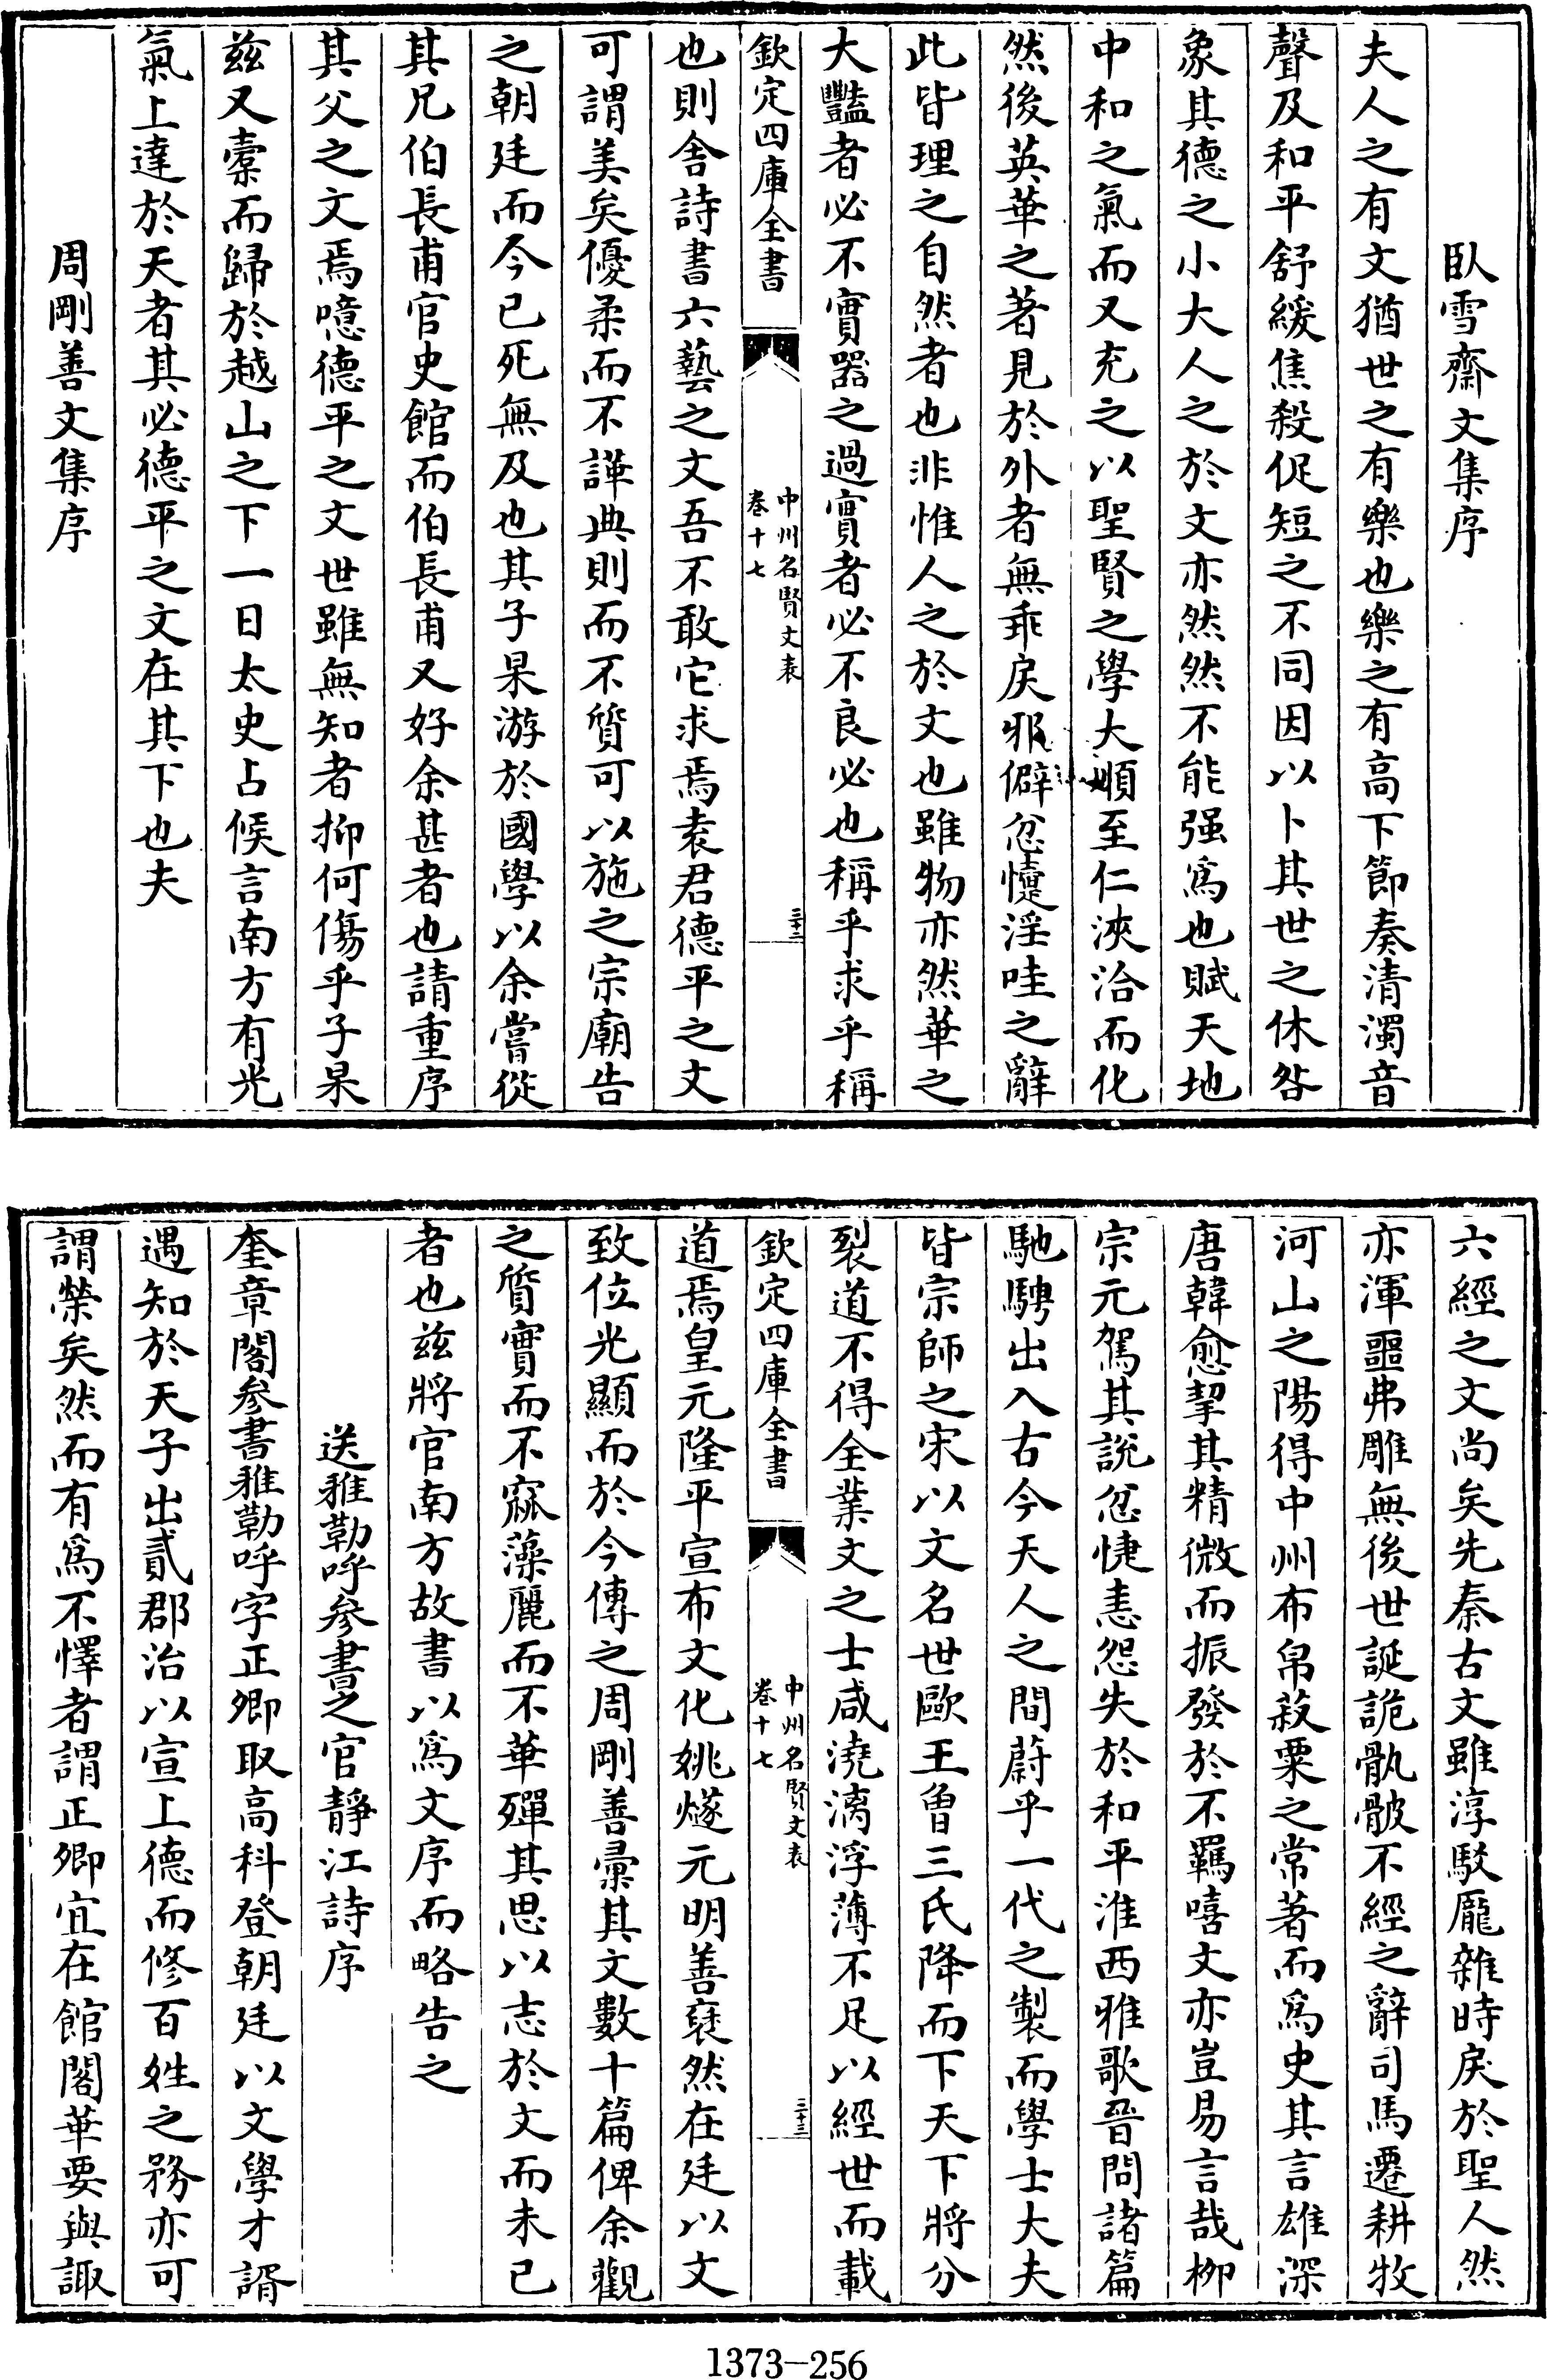 臥雪齋文集序
夫人之有文猶世之有樂也樂之有高下節奏清濁音
聲及和平舒緩焦殺促短之不同因以卜其世之休咎
象其德之小大人之於文亦然然不能强爲也賦天地
中和之氣而又充之以聖賢之學大順至仁浹洽而化
然後英華之著見於外者無乖戾邪僻忿懥淫哇之辭
此皆理之自然者也非惟人之於文也雖物亦然華之
大豔者必不實器之過實者必不良必也稱乎求乎稱
欽定四庫全書
中州名賢文表
卷十七
三十二
也則舍詩書六藝之文吾不敢它求焉袁君德平之文
可謂美矣優柔而不譁典則而不質可以施之宗廟告
之朝廷而今已死無及也其子杲游於國學以余嘗從
其兄伯長甫官史館而伯長甫又好余甚者也請重序
其父之文焉噫德平之文世雖無知者抑何傷乎子杲
兹又橐而歸於越山之下一日太史占候言南方有光
氣上達於天者其必德平之文在其下也夫
周剛善文集序
六經之文尚矣先秦古文雖淳駁厖雜時戾於聖人然
亦渾噩弗雕無後世誕詭骩骳不經之辭司馬遷耕牧
河山之陽得中州布帛菽粟之常著而爲史其言雄深
唐韓愈挈其精微而振發於不羈嘻文亦豈易言哉柳
宗元駕其說忿悽恚怨失於和平淮西雅歌晉問諸篇
馳騁出入古今天人之間蔚乎一代之製而學士大夫
皆宗師之宋以文名世歐王曾三氏降而下天下將分
裂道不得全業文之士咸澆漓浮薄不足以經世而載
欽定四庫全書
中州名賢文表
卷十七
三十三
道焉皇元隆平宣布文化姚燧元明善裒然在廷以文
致位光顯而於今傳之周剛善彙其文數十篇俾余觀
之質實而不窳藻麗而不華殫其思以志於文而未已
者也兹將官南方故書以爲文序而略告之
送雅勒呼參書之官靜江詩序
奎章閣參書雅勒呼字正卿取高科登朝廷以文學才諝
遇知於天子出貳郡治以宣上德而修百姓之務亦可
謂榮矣然而有爲不懌者謂正卿宜在館閣華要與諏
1373-256